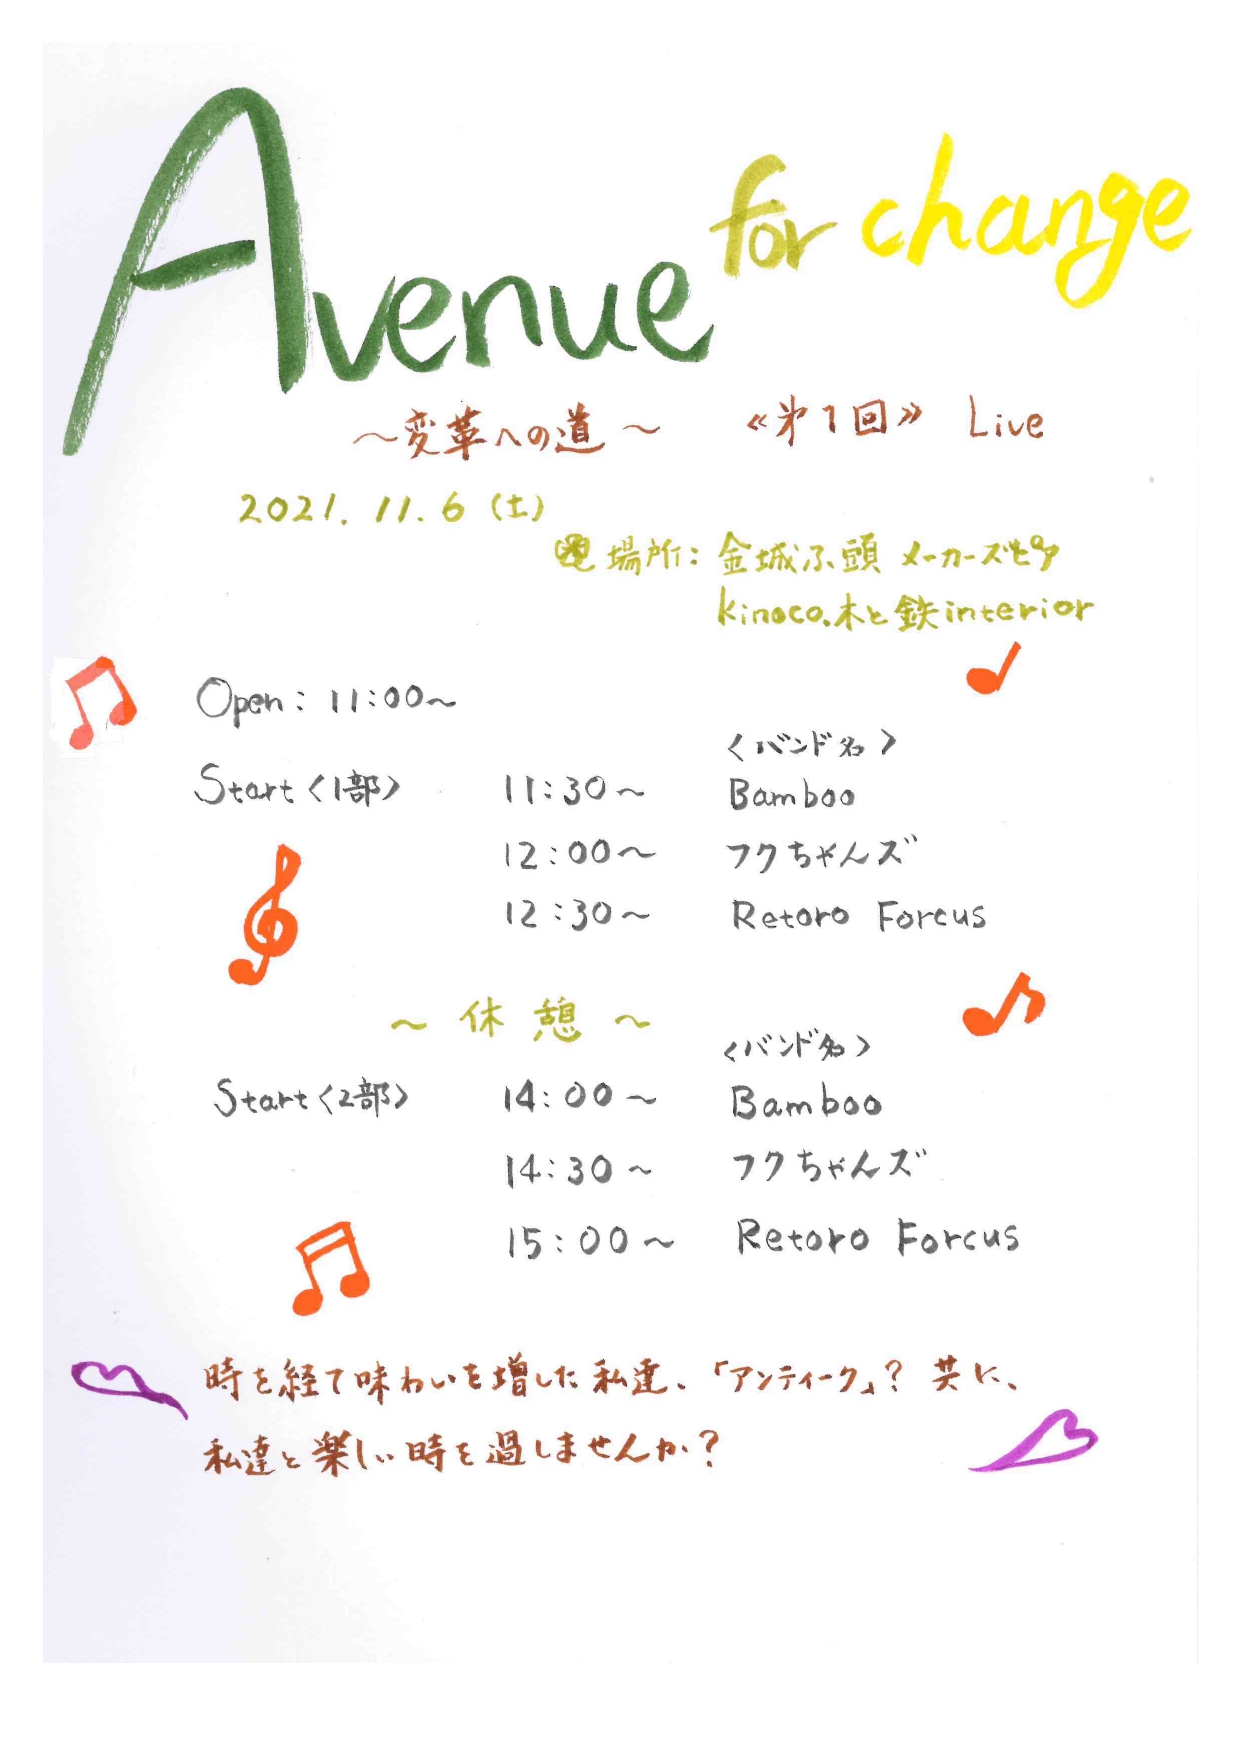 Avenue for change
～変革への道～ 《第1回》 Live
2021. 11. 6 (土)
場所: 金城ふ頭 メーカーズピア
kinoco.木と鉄interior
Open: 11:00～
〈バンド名〉
Start〈1部〉 11:30～ Bamboo
12:00～ フクちゃんズ
12:30～ Retoro Forcus
～ 休憩 ～
〈バンド名〉
Start〈2部〉 14:00～ Bamboo
14:30～ フクちゃんズ
15:00～ Retoro Forcus
時を経て味わいを増した私達、「アンティーク」? 共に、
私達と楽しい時を過しませんか?